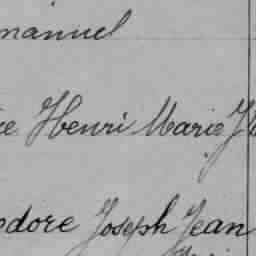 manuel
ce Henri Marie J
odore Joseph Jean